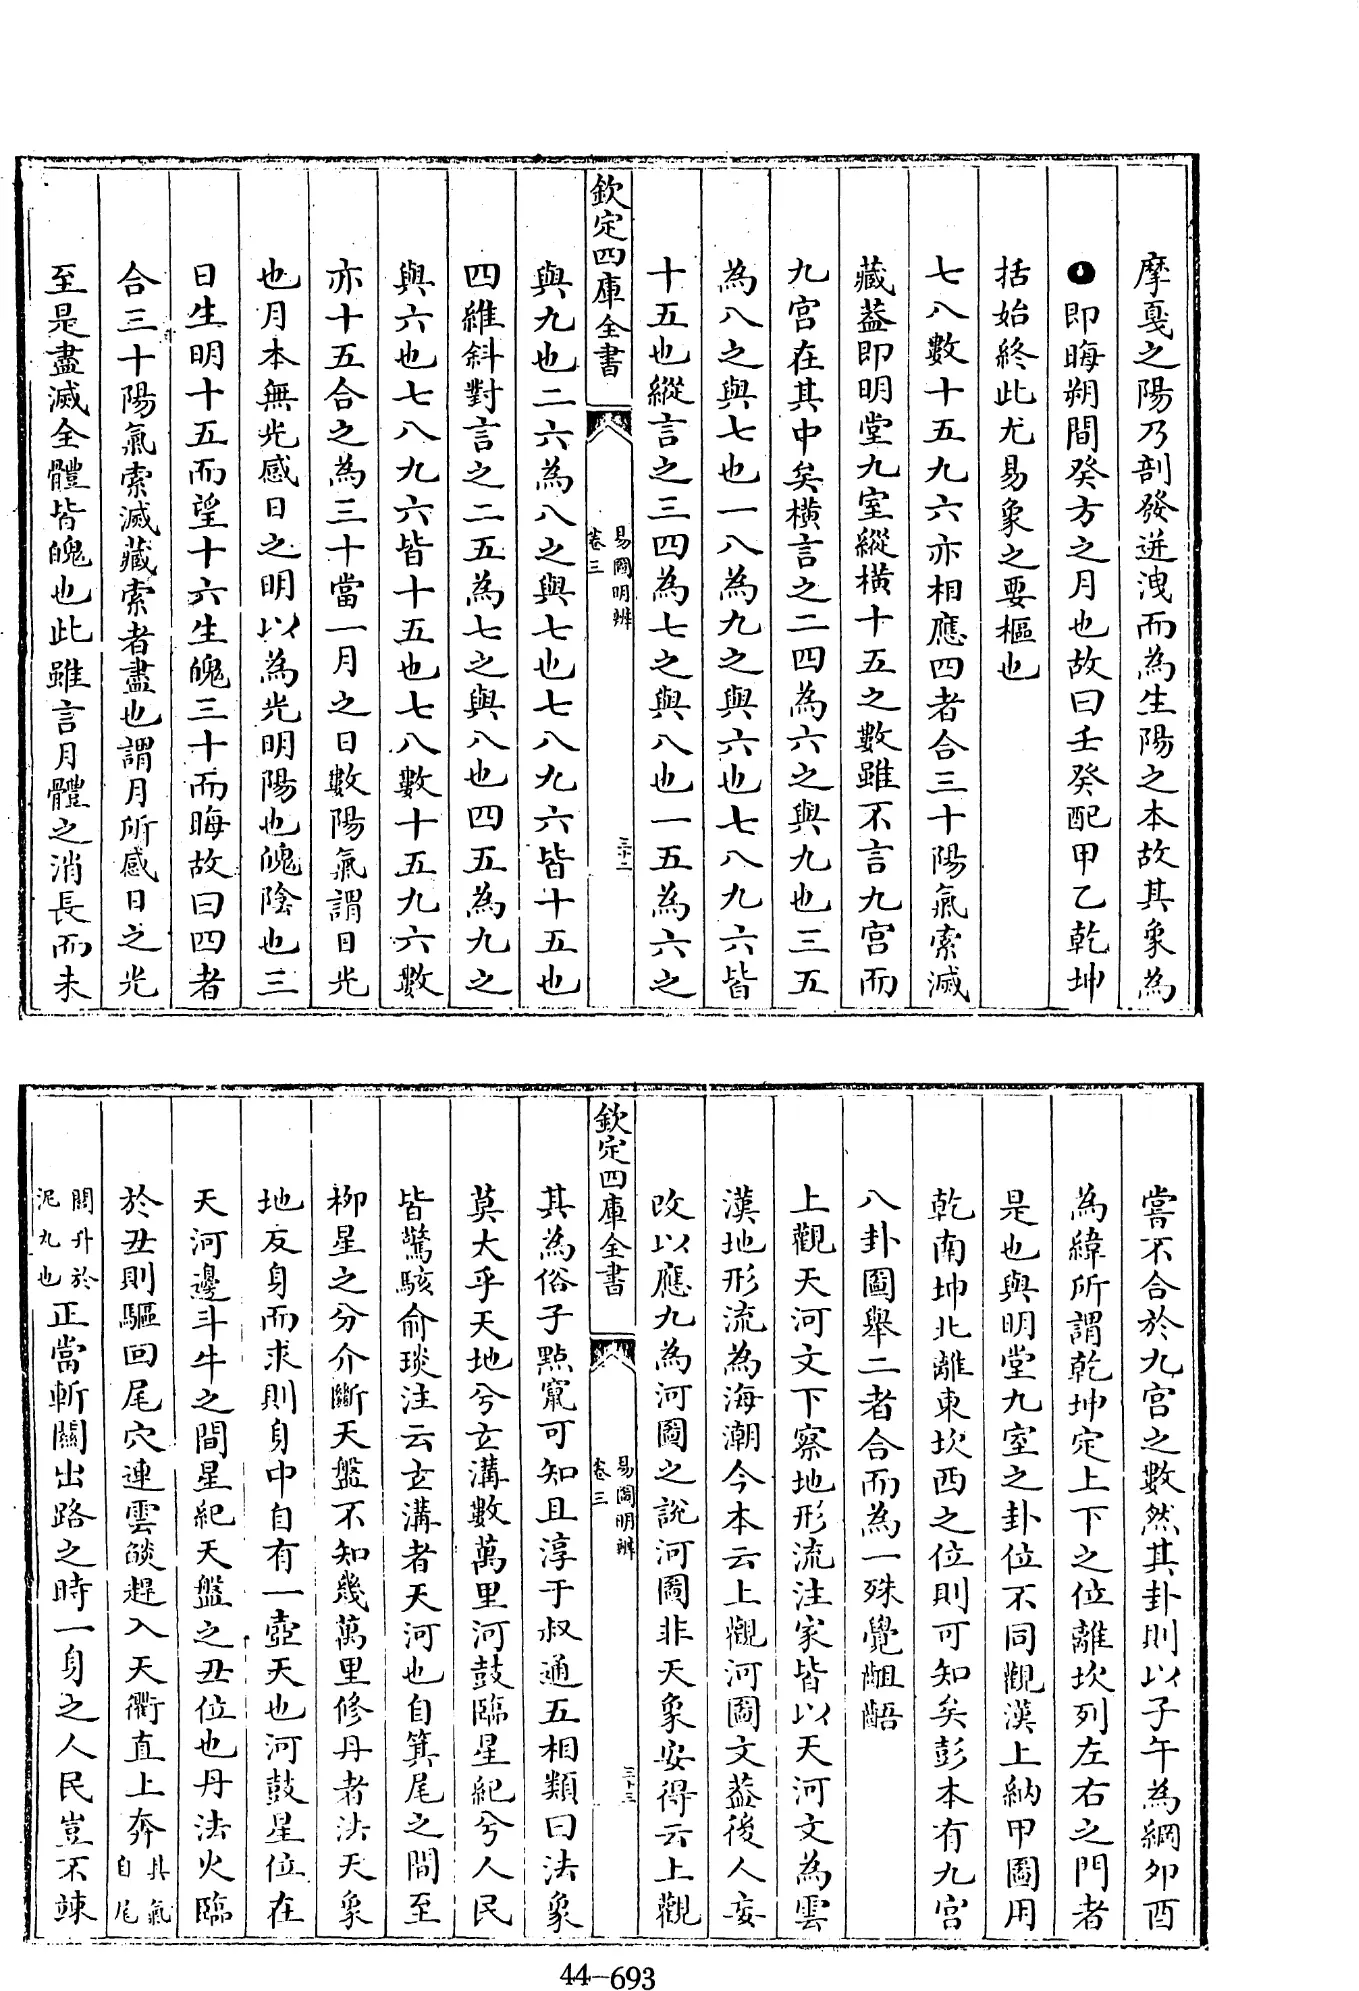 摩戛之陽乃剖發迸洩而為生陽之本故其象為
即晦朔間癸方之月也故曰壬癸配甲乙乾坤
括始終此尤易象之要樞也
七八數十五九六亦相應四者合三十陽氣索滅
藏葢即明堂九室縱橫十五之數雖不言九宮而
九宮在其中矣橫言之二四為六之與九也三五
為八之與七也一八為九之與六也七八九六皆
十五也縱言之三四為七之與八也一五為六之
欽定四庫全書
易圖明辨
卷三
三十二
與九也二六為八之與七也七八九六皆十五也
四維斜對言之二五為七之與八也四五為九之
與六也七八九六皆十五也七八數十五九六數
亦十五合之為三十當一月之日數陽氣謂日光
也月本無光感日之明以為光明陽也魄陰也三
日生明十五而望十六生魄三十而晦故曰四者
合三十陽氣索滅藏索者盡也謂月所感日之光
至是盡滅全體皆魄也此雖言月體之消長而未
嘗不合於九宮之數然其卦則以子午為綱卯酉
為緯所謂乾坤定上下之位離坎列左右之門者
是也與明堂九室之卦位不同觀漢上納甲圖用
乾南坤北離東坎西之位則可知矣彭本有九宮
八卦圖舉二者合而為一殊覺齟齬
上觀天河文下察地形流注家皆以天河文為雲
漢地形流為海潮今本云上觀河圖文葢後人妄
改以應九為河圖之說河圖非天象安得云上觀
欽定四庫全書
易圖明辨
卷三
三十三
其為俗子點竄可知且淳于叔通五相類曰法象
莫大乎天地兮玄溝數萬里河鼓臨星紀兮人民
皆驚駭俞琰注云玄溝者天河也自箕尾之間至
柳星之分介斷天盤不知幾萬里修丹者法天象
地反身而求則身中自有一壺天也河鼓星位在
天河邊斗牛之間星紀天盤之丑位也丹法火臨
於丑則驅回尾穴連雲燄趕入天衢直上奔其氣自尾
閭升於泥丸也正當斬關出路之時一身之人民豈不竦
44-693